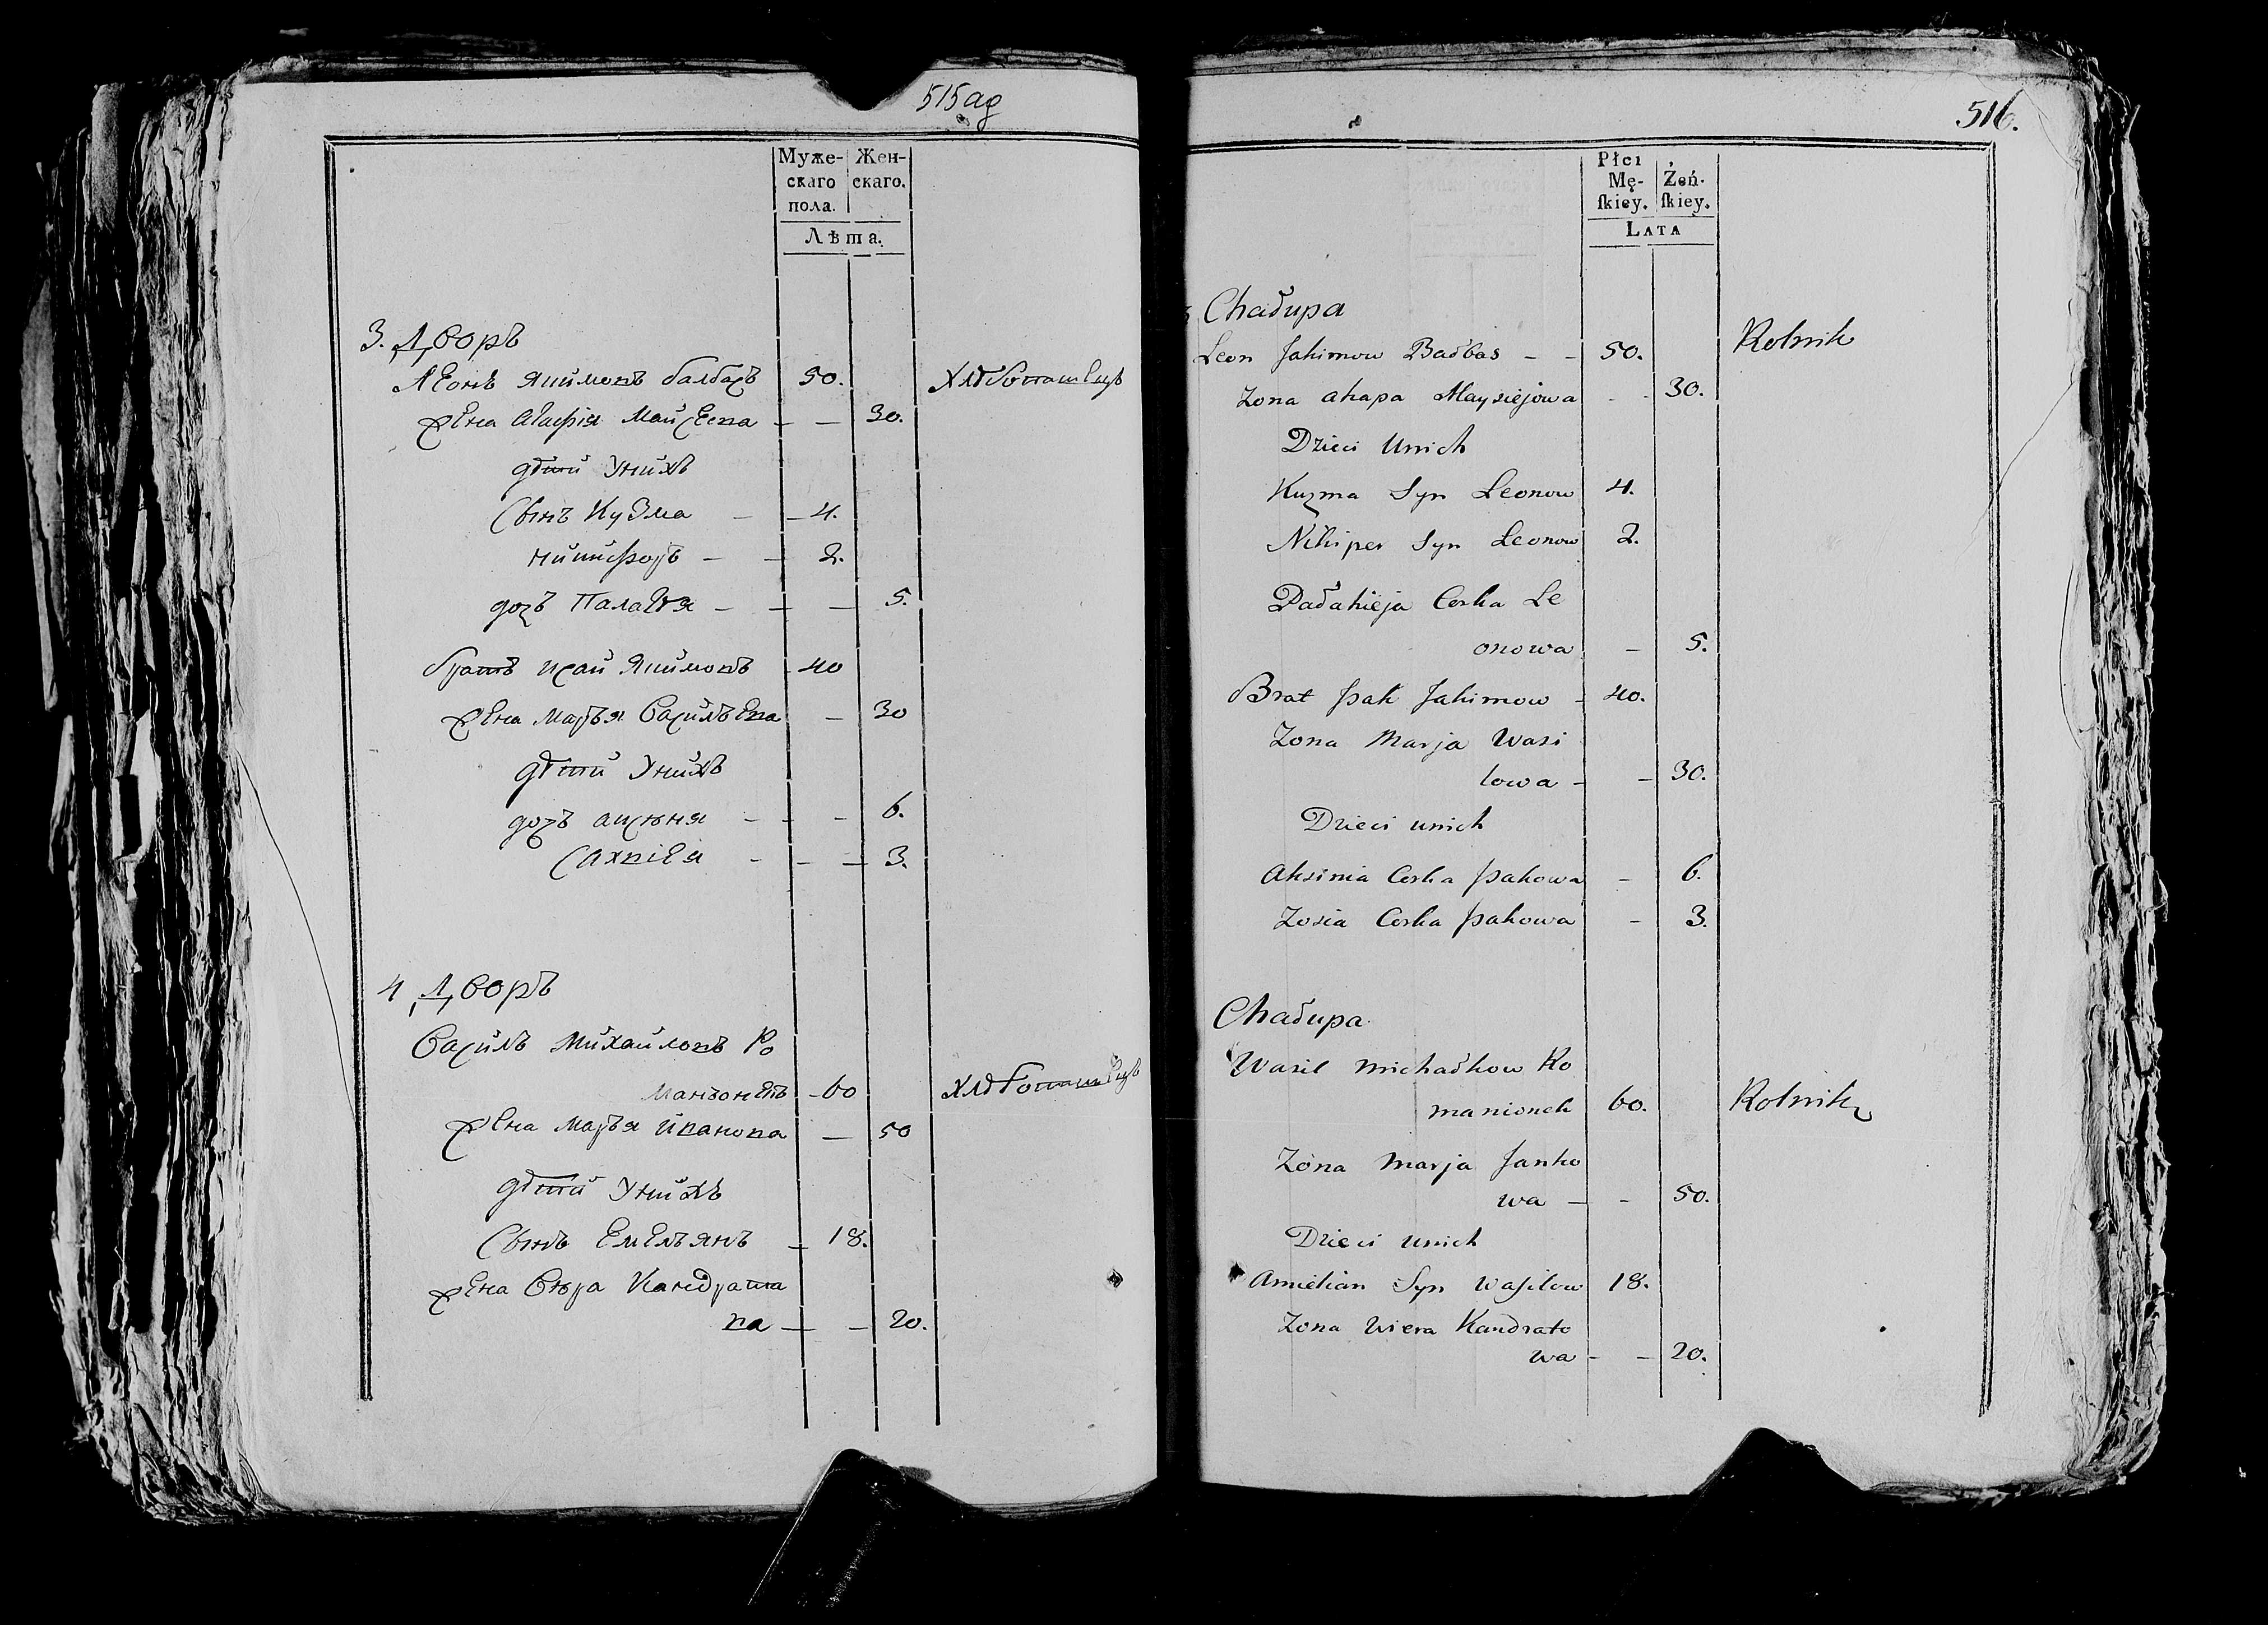 515 ад
Муже-
скаго
пола.
Жен-
скаго.
Лѣта.
3. Дворъ
Леонъ Якимовъ балбасъ 50. Хлѣбопашецъ
жена Агафія Майсеева — — 30.
дѣти Унихъ
Сынъ Кузма — — 4.
никифоръ — — 2.
дочъ Палагѣя — — — 5.
братъ исай Якимовъ - 40
жена Марья Васильева — 30
дѣти Унихъ
дочъ аксюня — - - 6.
Сахвія - — — 3.
4 Дворъ
Василь Михайловъ Ро
маньонекъ - 60 Хлѣбопашецъ
жена Марья иванова — 50
дѣти Унихъ
Сынъ Емельянъ - 18.
жена Вѣра Кандрато
ва — — 20.
516.
Płci
Mę-
ſkiey.
Żeń-
ſkiey.
LATA
Chałupa
Leon Jakimow Bałbas - - 50. Rolnik
Zona ahapa Maysiejowa - - 30.
Dzieci Unich
Kuzma Syn Leonow 4.
Nikiper Syn Leonow 2.
Pałahieja Corka Le
onowa - 5.
Brat Isak Jakimow - 40.
Zona Marja Wasi
lowa - - 30.
Dzieci unich
Aksinia Corka Isakowa - 6.
Zosia Corka Isakowa - 3.
Chałupa
Wasil michałkow Ro
manionek 60. Rolnik
Zona Marja Janko
wa — - 50.
Dzieci unich
Amielian Syn Waſilow 18.
Zona Wiera Kandrato
wa - - 20.